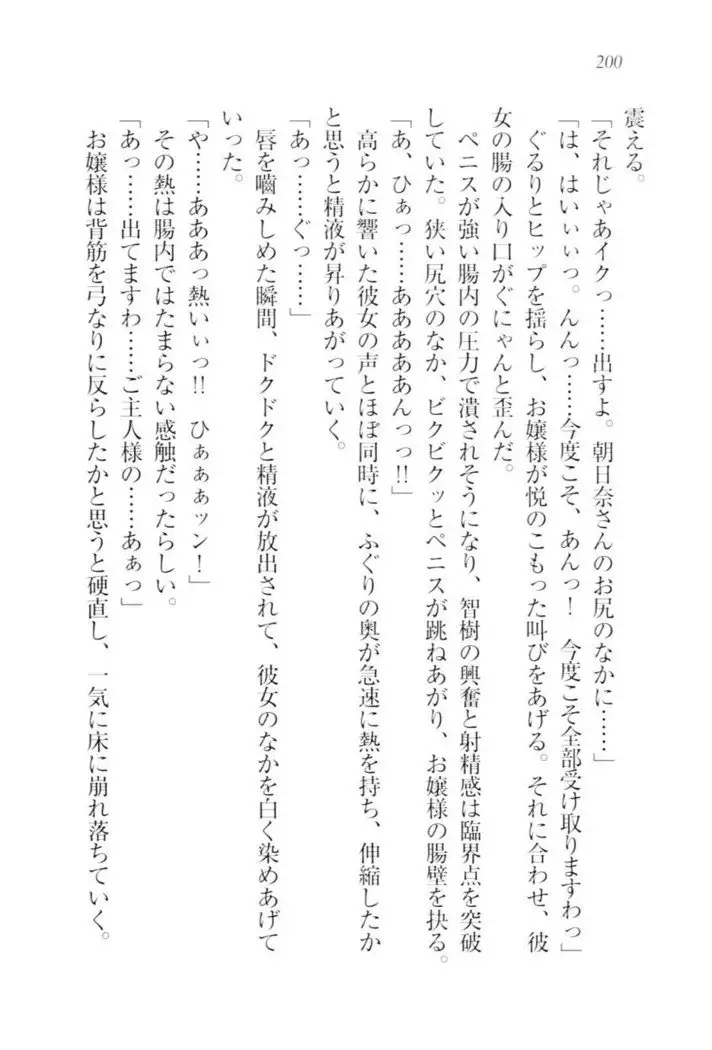 200
震える。
「それじゃあイクっ……出すよ。朝日奈さんのお尻のなかに……」
「は、はいぃぃっ。んんっ……今度こそ、あんっ！　今度こそ全部受け取りますわっ」
ぐるりとヒップを揺らし、お嬢様が悦のこもった叫びをあげる。それに合わせ、彼
女の腸の入り口がぐにゃんと歪んだ。
ペニスが強い腸内の圧力で潰されそうになり、智樹の興奮と射精感は臨界点を突破
していた。狭い尻穴のなか、ビクビクッとペニスが跳ねあがり、お嬢様の腸壁を抉る。
「あ、ひぁっ……あああああんっっ!!」
高らかに響いた彼女の声とほぼ同時に、ふぐりの奥が急速に熱を持ち、伸縮したか
と思うと精液が昇りあがっていく。
「あっ……ぐっ……」
唇を噛みしめた瞬間、ドクドクと精液が放出されて、彼女のなかを白く染めあげて
いった。
「や……あああっ熱いぃっ!!　ひぁぁぁッン！」
その熱は腸内ではたまらない感触だったらしい。
「あっ……出てますわ……ご主人様の……あぁっ」
お嬢様は背筋を弓なりに反らしたかと思うと硬直し、一気に床に崩れ落ちていく。